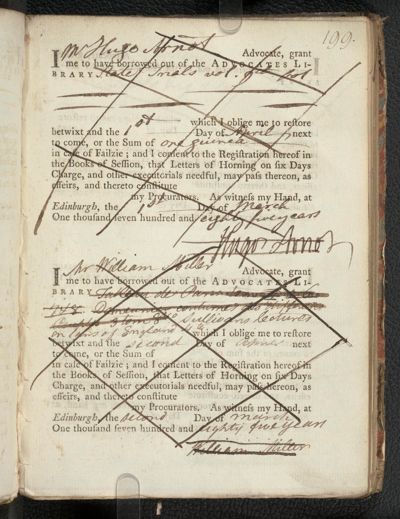 199.
I Mr Hugo Arnot Advocate, grant
me to have borrowed out of the ADVOCATES LI-
BRARY State Trials vol. fol
betwixt and the 1st which I oblige me to restore
Day of April next
to come, or the Sum of one guinea
in case of Failzie; and I consent to the Registration hereof in
the Books of Session, that Letters of Horning on six Days
Charge, and other executorials needful, may pass thereon, as
effeirs, and thereto constitute
my Procurators. As witness my Hand, at
Edinburgh, the 1st Day of March
One thousand seven hundred and eighty five years
Hugo Arnot
I Mr William Miller Advocate, grant
me to have borrowed out of the ADVOCATES LI-
BRARY
Sullivans Lectures
on Laws of England
which I oblige me to restore
betwixt and the second Day of April next
to come, or the Sum of
in case of Failzie; and I consent to the Registration hereof in
the Books of Session, that Letters of Horning on six Days
Charge, and other executorials needful, may pass thereon, as
effeirs, and thereto constitute
my Procurators. As witness my Hand, at
Edinburgh, the second Day of March
One thousand seven hundred and eighty five years
William Miller